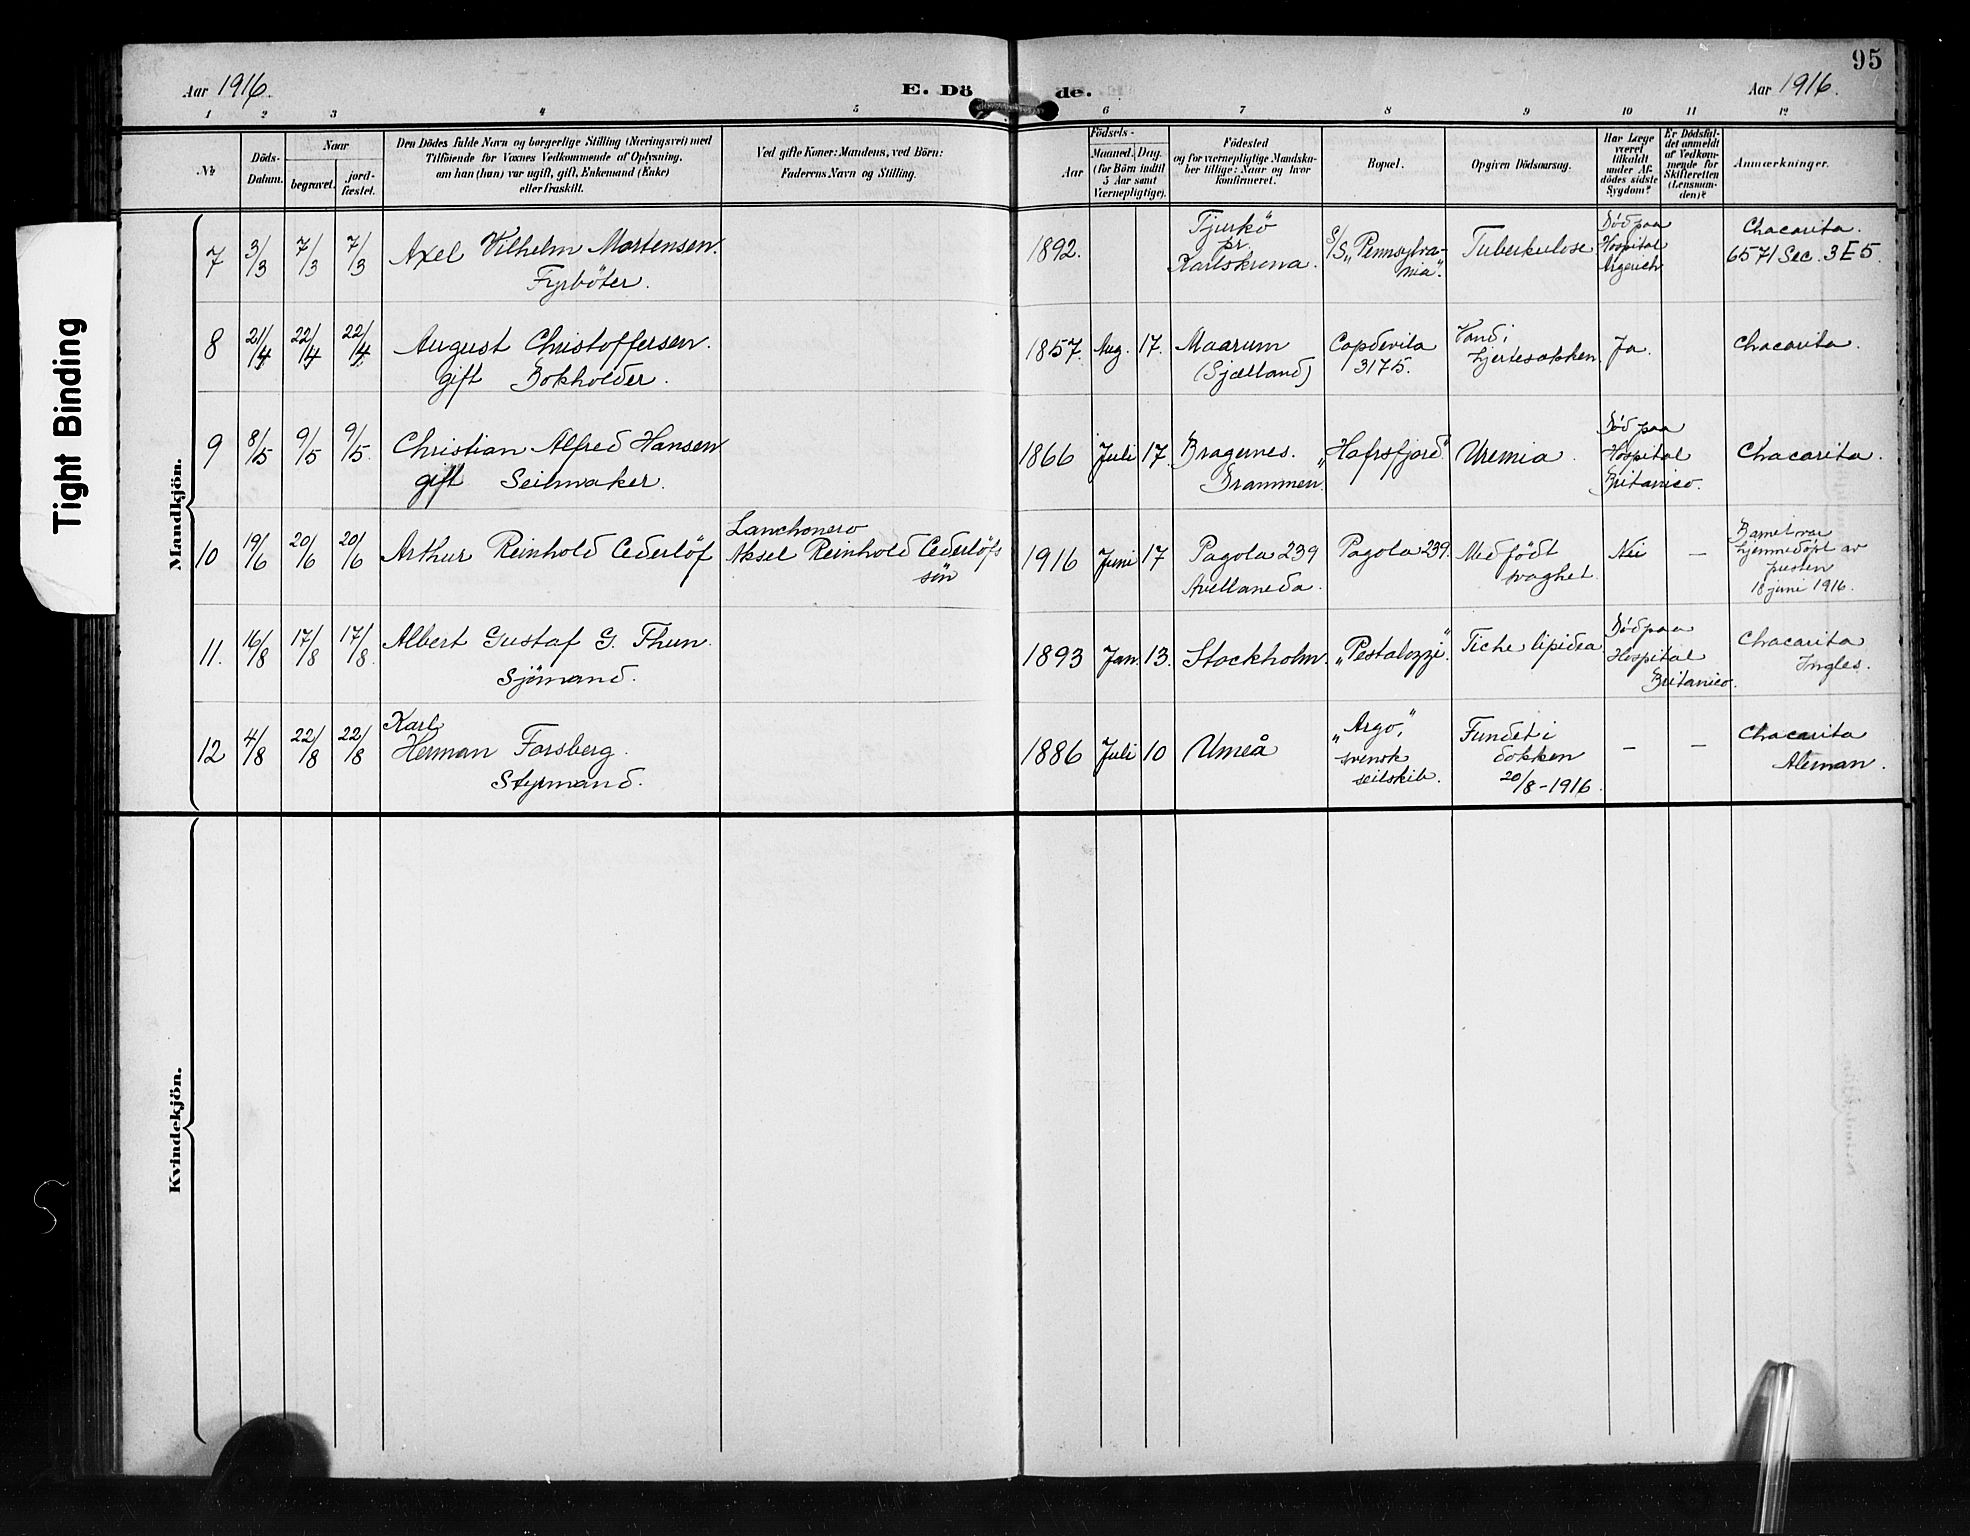 95
Aar 1916.
E. Döde.
Aar 1916.
1 2 3 4 5 6 7 8 9 10 11 12
№
Döds-Datum.
Naar
begravet.
jord-fæstet.
Den Dödes fulde Navn og borgerlige Stilling (Næringsvei) med
Tilföiende for Voxnes Vedkommende af Oplysning,
om han (hun) var ugift, gift, Enkemand (Enke)
eller fraskilt.
Ved gifte Koner: Mandens, ved Börn:
Faderens Navn og Stilling.
Födsels-
Aar
Maaned.
Dag.
(for Börn indtil
5 Aar samt
Værnepligtige).
Födested
og for værnepligtige Mandska-
ber tillige: Naar og hvor
konfirmeret.
Bopæl.
Opgiven Dödsaarsag.
Har Læge
været
tilkaldt
under Af-
dödes sidste
Sygdom?
Er Dödsfal-
det anmeldt
af Vedkom-
mende for
Skifteretten
(Lensman-
den)?
Anmærkninger.
Tight Binding
Mandkjön.
7 3/3 7/3 7/3 Axel Vilhelm Martensen. Fyrböter. 1892. Tjurkö pr. Karlskrona. S/S „Pennsylva-nia". Tuberkulose Död paa Hospital Argerich Chacarita. 6571 Sec. 3E5.
8 21/4 22/4 22/4 August Christoffersen. gift Bokholder. 1857. Aug. 17. Maarum (Sjælland) Capdevila 3175. Vand i hjertesækken. Ja. Chacarita.
9 8/5 9/5 9/5. Christian Alfred Hansen gift Seilmaker. 1866 Juli 17 Bragernes. Drammen. „Hafrsfjord." Uremia. Död paa Hospital Britanico. Chacarita.
10 19/6 20/6 20/6 Arthur Reinhold Cederlöf Lanchonero Aksel Reinhold Cederlöfs sön 1916 Juni 17 Pagola 239 Avellaneda. Pagola 239. Medfödt svaghet. Nei — Barnet var hjemmedöpt av presten 18 juni 1916.
11. 16/8 17/8 17/8. Albert Gustaf G. Thun. Sjömand. 1893 Jan. 13. Stockholm. „Pestalozzi". Död paa Hospital Britanico. Chacarita Ingles.
12 4/8 22/8 22/8 Karl Herman Forsberg. Styrmand. 1886 Juli 10 Umeå „Argo", svensk seilskib. Fundet i dokken 20/8-1916. — — Chacarita Aleman.
Kvindekjön.